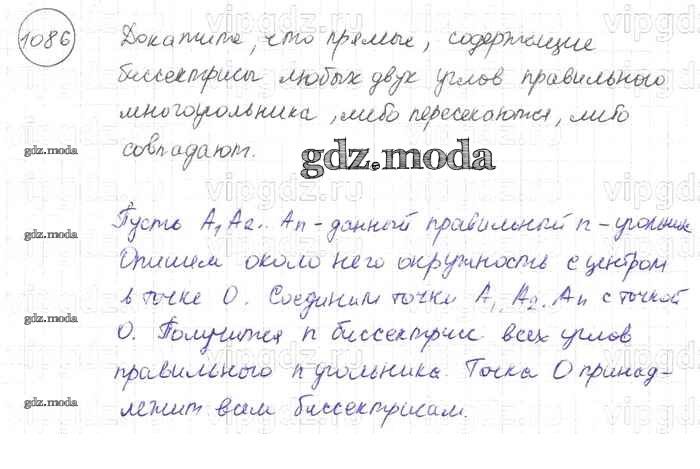 1086
Докажите, что прямые, содержащие
биссектрисы любых двух углов правильного
многоугольника, либо пересекаются, либо
совпадают.
gdz.moda
gdz.moda
Пусть A₁A₂...Aₙ - данный правильный n-угольник
gdz.moda
Опишем около него окружность с центром
в точке O. Соединим точки A₁, A₂, Aₙ с точкой
O. Получится n биссектрис всех углов
gdz.moda
правильного n угольника. Точка O принад-
лежит всем биссектрисам.
gdz.moda